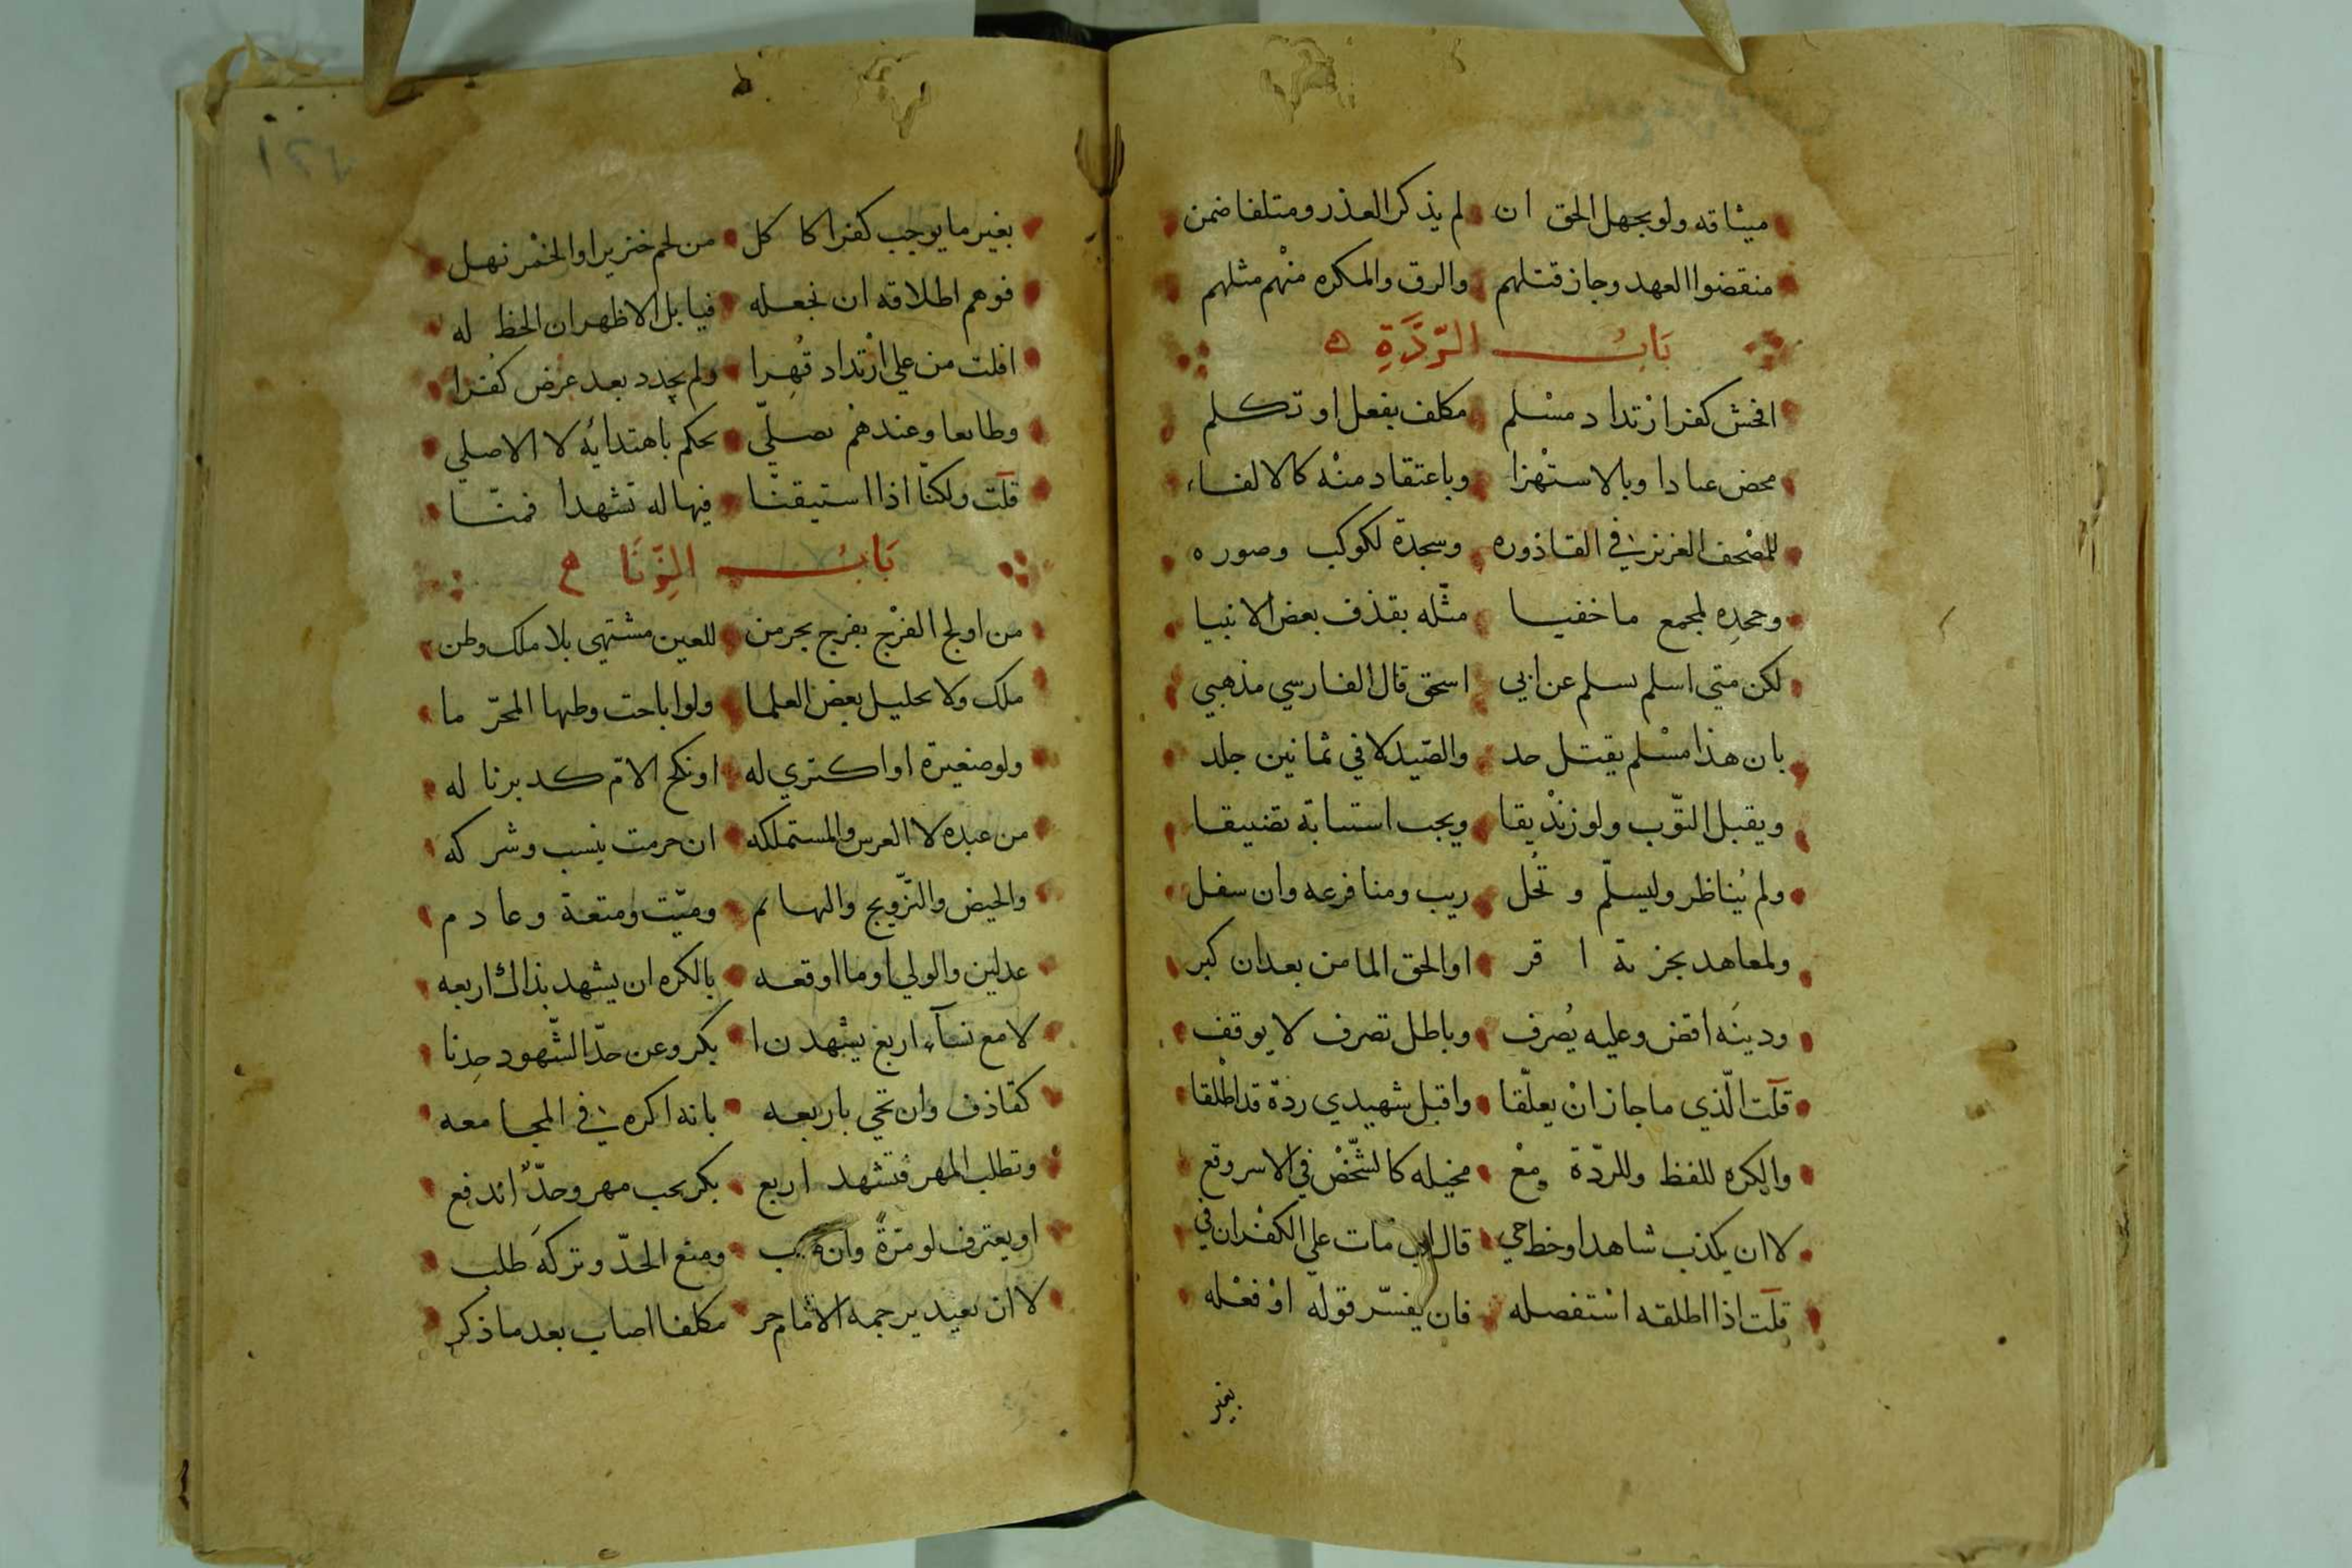 ميثاقه ولو بجهل الحق ان لم يذكر العذر ومتلفا ضمن
منقضوا العهد وجاز قتلهم والرق والمكره منْهم مثلهم
بَابُ الرِّدَّةِ
افحش كفر ارْتداد مسْلم مكلف بفعل او تكلم
محض عنادا وبالاستهْزا وباعتقاد منْه كالالقاء
للمصْحف العزيز في القاذوره وسجدة لكوكب وصوره
وجحدِه لمجمع ما خفيا مثّله بقذف بعض الانبيا
لكن متي اسلم يسلم عن ابي اسحق قال الفارسي مذهبي
بان هذا مسْلم يقتل حد والصّيدلاني ثمانين جلد
ويقبل التّوب ولو زنْديقا ويجب استتابة تضييقا
ولم يُناظر وليسلّم وتُحل ريب ومنا فرعه وان سفل
ولمعاهد بجزية اقر او الحق المامن بعد ان كبر
ودينَه اقض وعليه يُصرف وباطل تصرف لا يوقف
قلت الّذي ما جاز انْ يعلّقا واقبل شهيدي ردة قد اطْلقا
والكره للفظ وللردّة معْ مخيله كالشّخْص في الاسر وقع
لا ان يكذب شاهدا وخط حي قال اب مات علي الكفْران في
قلت اذا اطلقه استفصله فان يفسّر قوله اوْ فعْله
بغير
بغير ما يوجب كفرا كا كل من لحم خنزير او الخمْر نهل
فوهم اطلاقه ان نجعله فيا بل الاظهر ان الحظ له
افلت من علي ارْتداد قُهِرا ولم يجدد بعد عرض كفرا
وطايعا وعندهمْ يصلّي يحكم باهتدائه لا الاصلي
قلت ولكنّا اذا استيقنّا فيها له تشهدا فمنّا
بَابُ الزِّنَا
من اولج الفرْج بفرج بحر من للعين مشتهي بلا ملك وظن
ملك ولا تحليل بعض العلما ولو اباحت وطيها المحرّ ما
ولو صغيرة او اكتري له او نكح الامّ كدبرنا له
من عبده لا العرس والمستملكه ان حرمت بنسب وشركه
والحيض والتّزويج والبهايم وميّت ومتعة وعادم
عدلين والولي او ما اوقعه بالكره ان يشهد بذاك اربعه
لا مع نسآء اربع يشهدن ا بكر وعن حدّ الشّهود حِدنا
كقاذف وان تجي باربعه بانه اكره في المجامعه
وتطلب المهر فتشهد اربع بكر يجب مهر وحدّ اندفع
او يعترف لو مرّةً وان ومنع الحدّ وتركَه طلب
لا ان يعيد يرجمه الامام حر مكلفا اصاب بعد ما ذكر